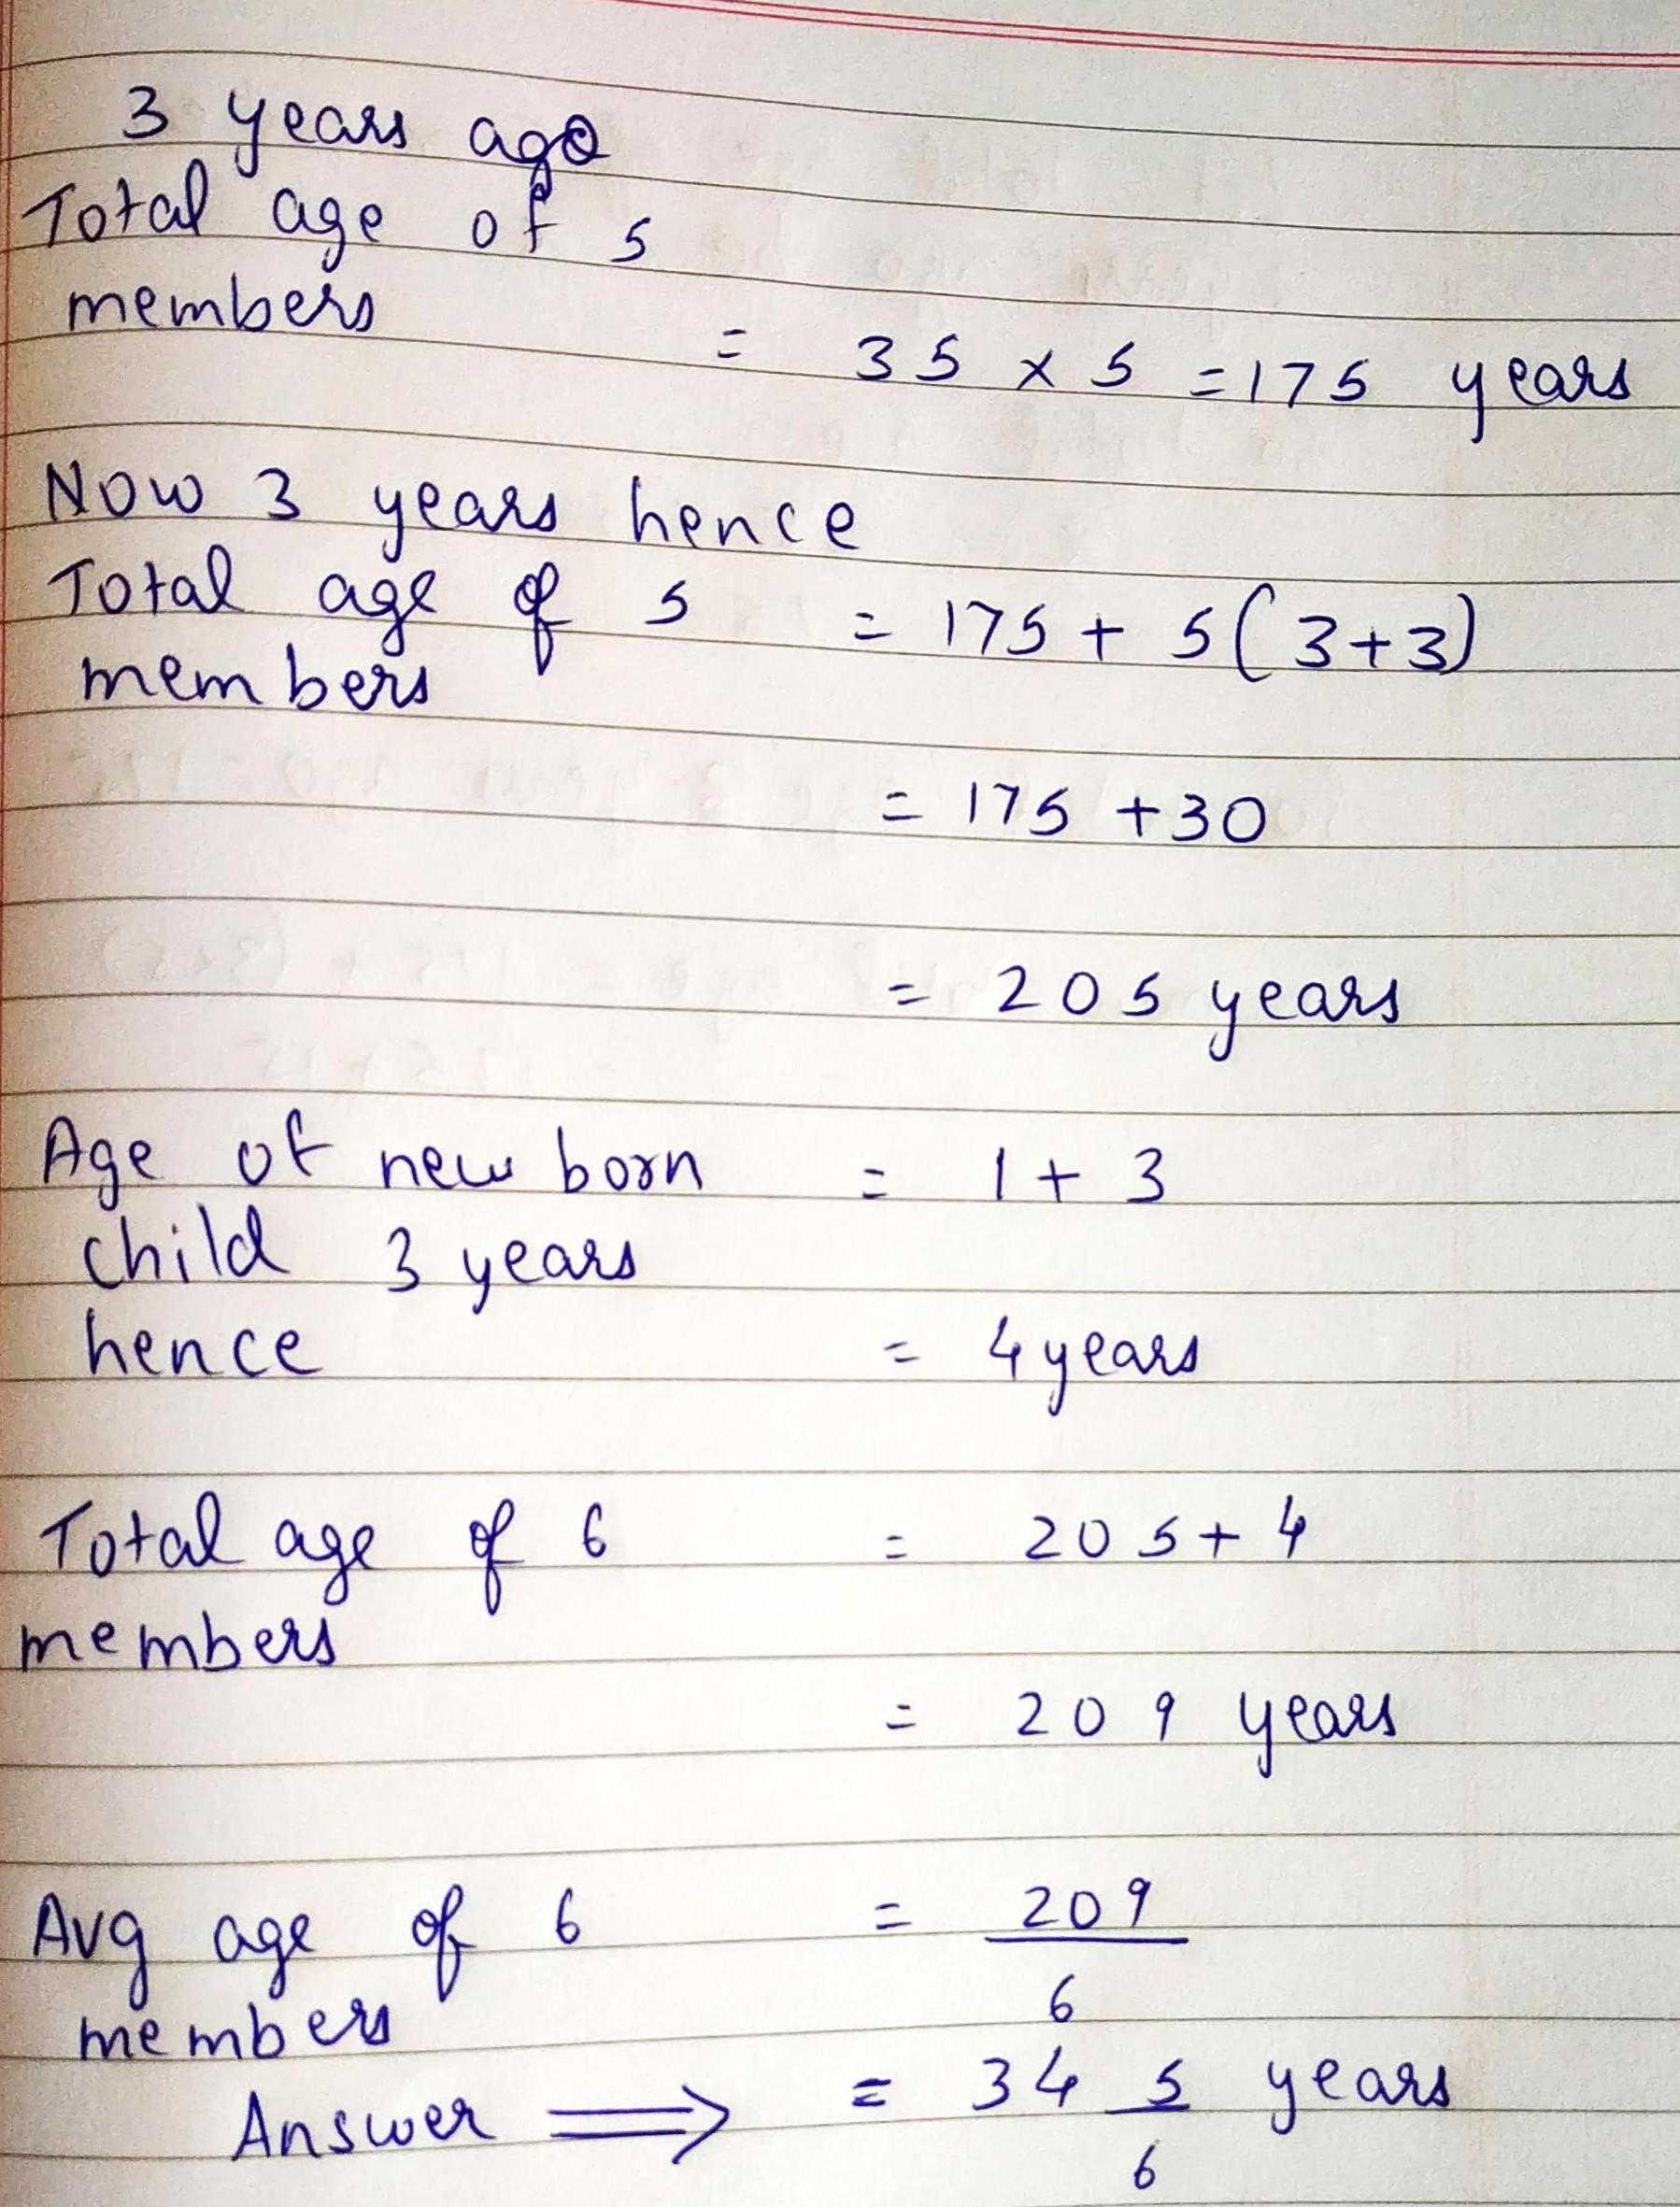 3 years ago
Total age of 5
members = 35 x 5 = 175 years
Now 3 years hence
Total age of 5 = 175 + 5(3+3)
members
= 175 + 30
= 205 years
Age of new born = 1 + 3
child 3 years
hence = 4 years
Total age of 6 = 205 + 4
members
= 209 years
Avg age of 6 = 209/6
members
Answer ⟹ = 34 5/6 years